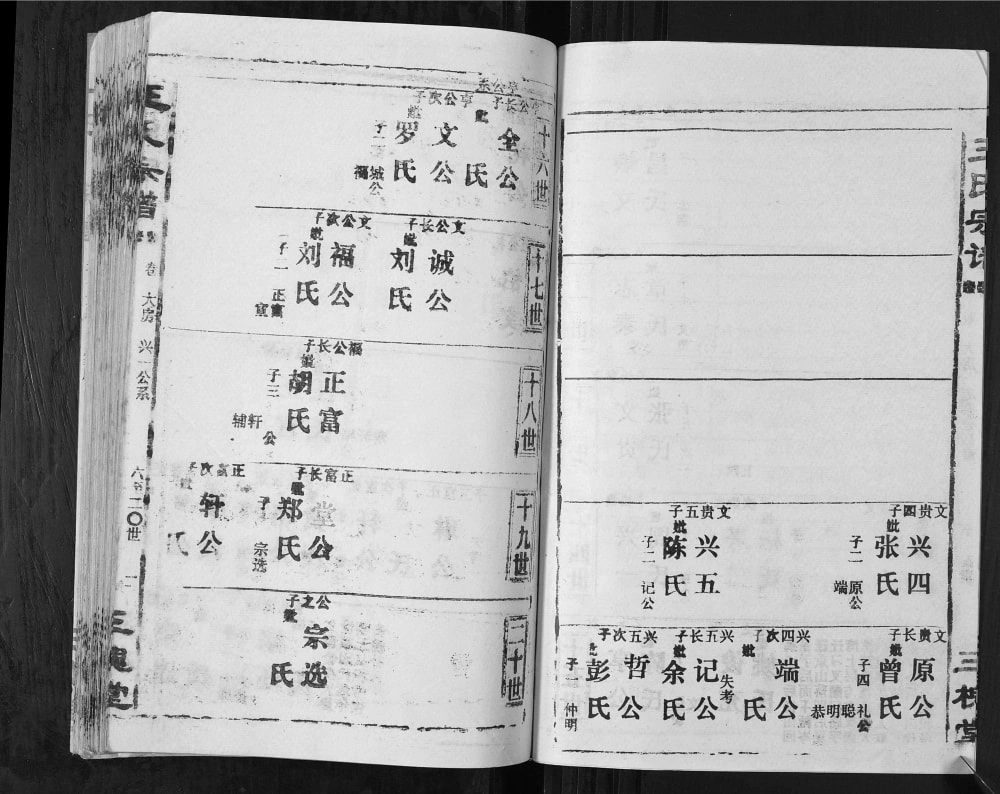 王氏宗谱
三槐堂
文贵四子
兴四
妣
张氏
子二
原公
端
文贵五子
兴五
妣
陈氏
子二
记公
文贵长子
原公
妣
曾氏
子四
礼聪明恭
公
兴四次子
端公
妣
氏
兴五长子
记公
失考
妣
余氏
兴五次子
哲公
彭氏
子一
仲明
十六世
亨公长子
全公
妣
氏
亨公次子
文公
妣
罗氏
子二
城公
福
十七世
文公长子
诚公
妣
刘氏
文公次子
福公
妣
刘氏
子一
正富
十八世
福公长子
正富
妣
胡氏
子三
轩辅
公
十九世
正富长子
堂公
妣
郑氏
子
宗选
正富次子
轩公
妣
氏
二十世
公之子
宗选
妣
氏
王氏宗谱
卷
大房
兴一公系
二〇世
三槐堂